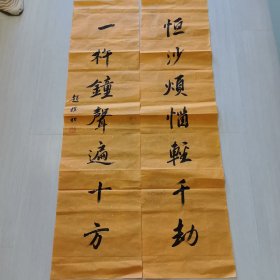 恒沙煩惱輕千劫
一杵鐘聲遍十方
趙樸初